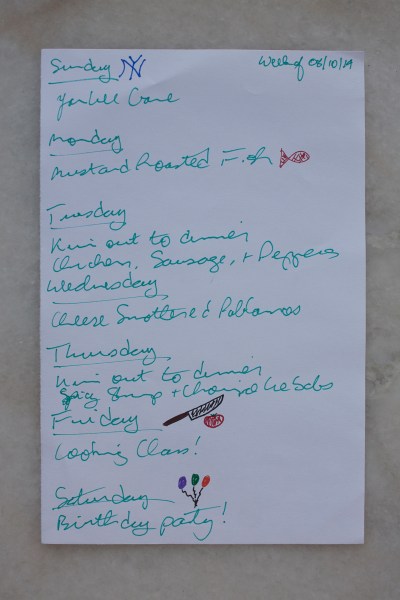 Sunday NY Week of 08/10/14
Yankee Game
Monday
Mustard Roasted Fish
Tuesday
Kim out to dinner
Chicken, Sausage, + Peppers
Wednesday
Cheese Smothered Poblanos
Thursday
Kim out to dinner
Spicy Shrimp + Chorizo Kebabs
Friday
Cooking Class!
Saturday
Birthday party!